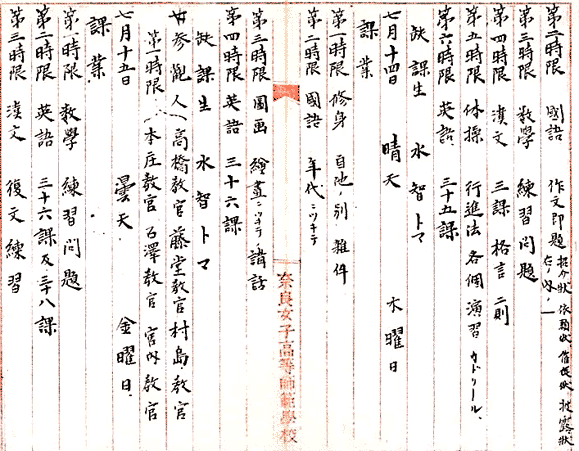 第二時限 國語 作文即題 紹介狀 依頼狀 催促狀 披露狀
右ノ内ノ一
第三時限 數學 練習問題
第四時限 漢文 三課 格言二則
第五時限 体操 行進法 各個演習 カドリール、
第六時限 英語 三十五課
缺課生 水智トマ
七月十四日 晴天 木曜日
課業
第一時限 修身 自他ノ別 雜件
第二時限 國語 年代ニツキテ
奈良女子高等師範學校
第三時限 圖画 繪畫ニツキテノ講話
第四時限 英語 三十六課
缺課生 水智トマ
参観人 高橋教官 藤堂教官 村島教官
第一時限 本庄教官 石澤教官 教官
七月十五日 曇天 金曜日
課業
第一時限 數學 練習問題
第二時限 英語 三十六課及三十八課
第三時限 漢文 復文練習